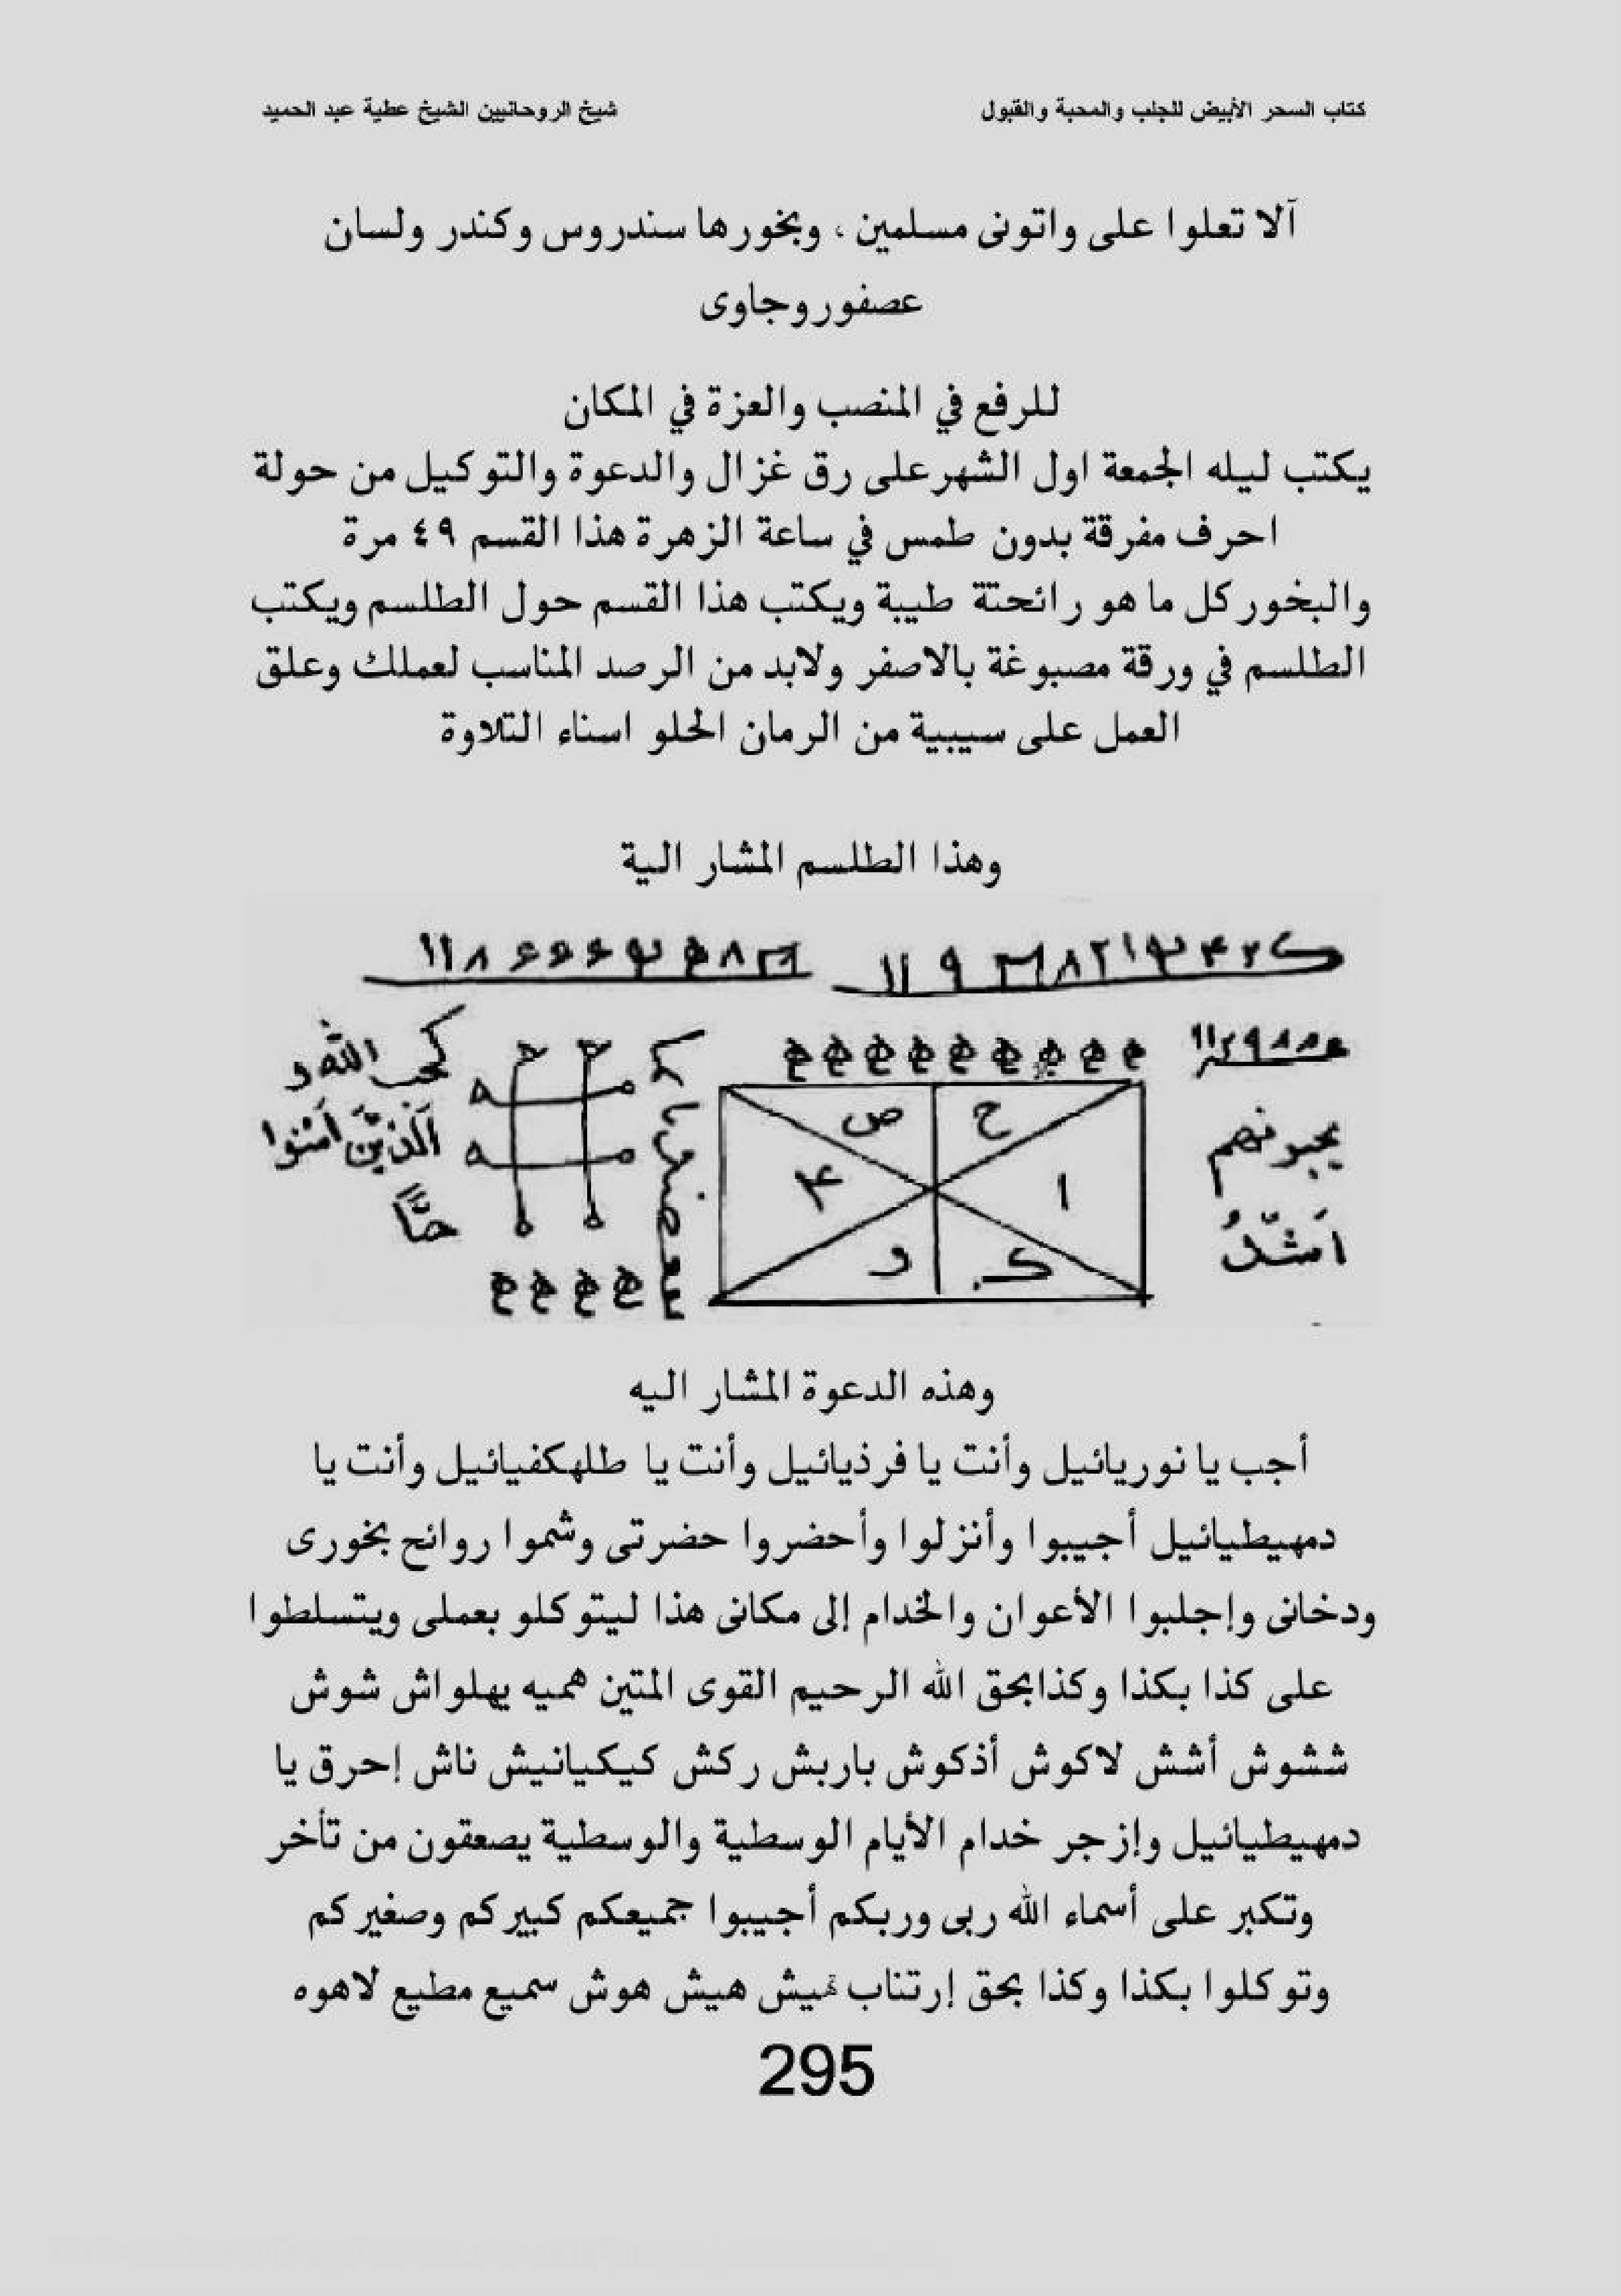 كتاب السحر الأبيض للجلب والمحبة والقبول
شيخ الروحانيين الشيخ عطية عبد الحميد
آلا تعلوا على واتونى مسلمين ، وبخورها سندروس وكندر ولسان
عصفور وجاوى
للرفع في المنصب والعزة في المكان
يكتب ليله الجمعة اول الشهر على رق غزال والدعوة والتوكيل من حولة
احرف مفرقة بدون طمس في ساعة الزهرة هذا القسم ٤٩ مرة
والبخور كل ما هو رائحتة طيبة ويكتب هذا القسم حول الطلسم ويكتب
الطلسم في ورقة مصبوغة بالاصفر ولابد من الرصد المناسب لعملك وعلق
العمل على سيبية من الرمان الحلو اسناء التلاوة
وهذا الطلسم المشار الية
كحب الله و
الَّذِينَ آمَنوا
يحبونهم
اشدُ
حبًّا
ص ح
ا
و ك
وهذه الدعوة المشار اليه
أجب يا نوريائيل وأنت يا فرذيائيل وأنت يا طلهكفيائيل وأنت يا
دمهيطيائيل أجيبوا وأنزلوا وأحضروا حضرتى وشموا روائح بخورى
ودخانى وإجلبوا الأعوان والخدام إلى مكانى هذا ليتوكلو بعملى ويتسلطوا
على كذا بكذا وكذابحق الله الرحيم القوى المتين هميه يهلواش شوش
ششوش أشش لاكوش أذكوش باربش ركش كيكيانيش ناش إحرق يا
دمهيطيائيل وإزجر خدام الأيام الوسطية والوسطية يصعقون من تأخر
وتكبر على أسماء الله ربى وربكم أجيبوا جميعكم كبيركم وصغيركم
وتوكلوا بكذا وكذا بحق إرتناب هيش هوش سميع مطيع لاهوه
295